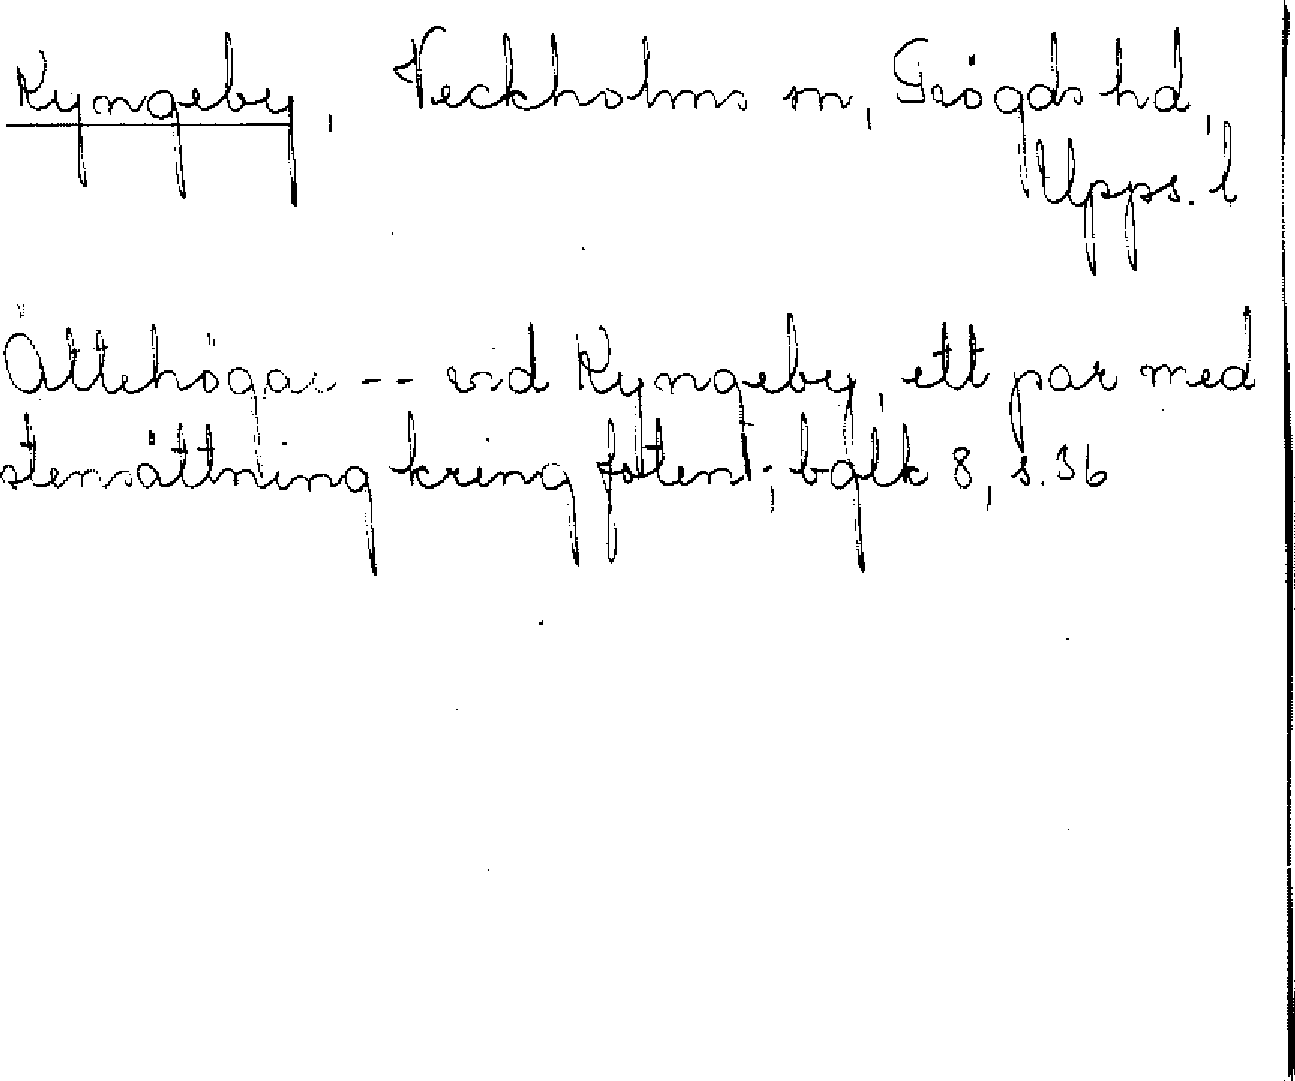 Kyngeby, Veckholms sn, Trögds hd,
Upps. l
Ättehögar -- vid Kyngeby, ett par med
stensättning kring foten; bqlk 8, s. 36